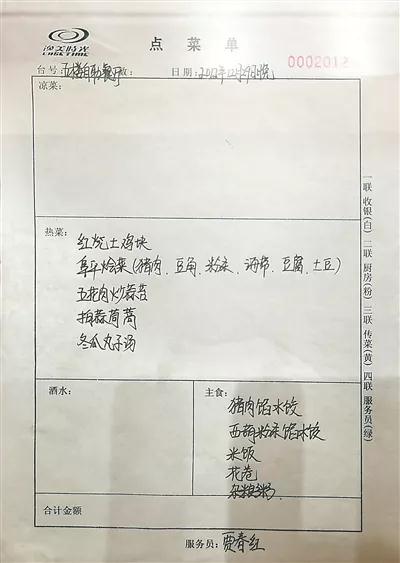 点 菜 单
0002012
台号: 五楼自助餐厅 数: 日期: 2012年12月29日晚
凉菜:
热菜:
红烧土鸡块
阜平烩菜(猪肉、豆角、粉条、海带、豆腐、土豆)
五花肉炒蒜苔
拍蒜茼蒿
冬瓜丸子汤
酒水:
主食:
猪肉馅水饺
西葫粉条馅水饺
米饭
花卷
杂粮粥.
合计金额
服务员: 贾春红
一联 收银(白) 二联 厨房(粉) 三联 传菜(黄) 四联 服务员(绿)